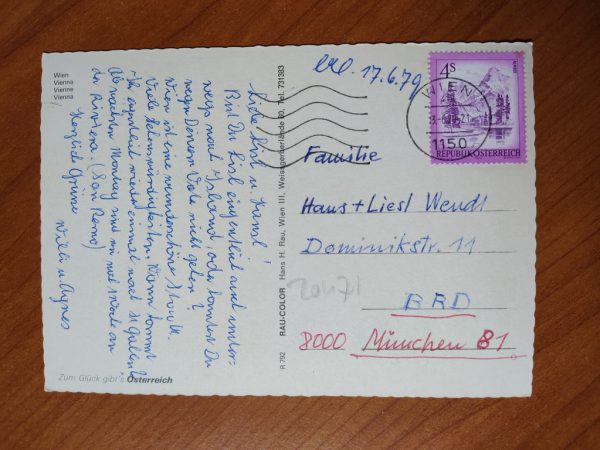 Wien
Vienna
Vienne
Vienna
Liebe Liesl u. Hansl!
Bist Du Liesl eingentlich auch unter-
wegs nach Island oder konntest Du
wegen Deinem Vati nicht gehen?
Wien ist eine wunderschöne Stadt.
Viele Sehenswürdigkeiten. Wann kommt
Ihr eigentlich wieder einmal nach St Gallen?
Ab nächsten Montag sind wir mit
der Riviera. (San Remo)
Herzliche Grüsse
Willi u. Agnes
Zum Glück gibt's Österreich
R 792 RAU-COLOR Hans H. Rau, Wien III, Weissgerberlände 50, Tel. 731383
17.6.79
4S
REPUBLIK ÖSTERREICH
WIEN
1150
Familie
Hans + Liesl Wendl
Dominikstr. 11
BRD
8000 München 81